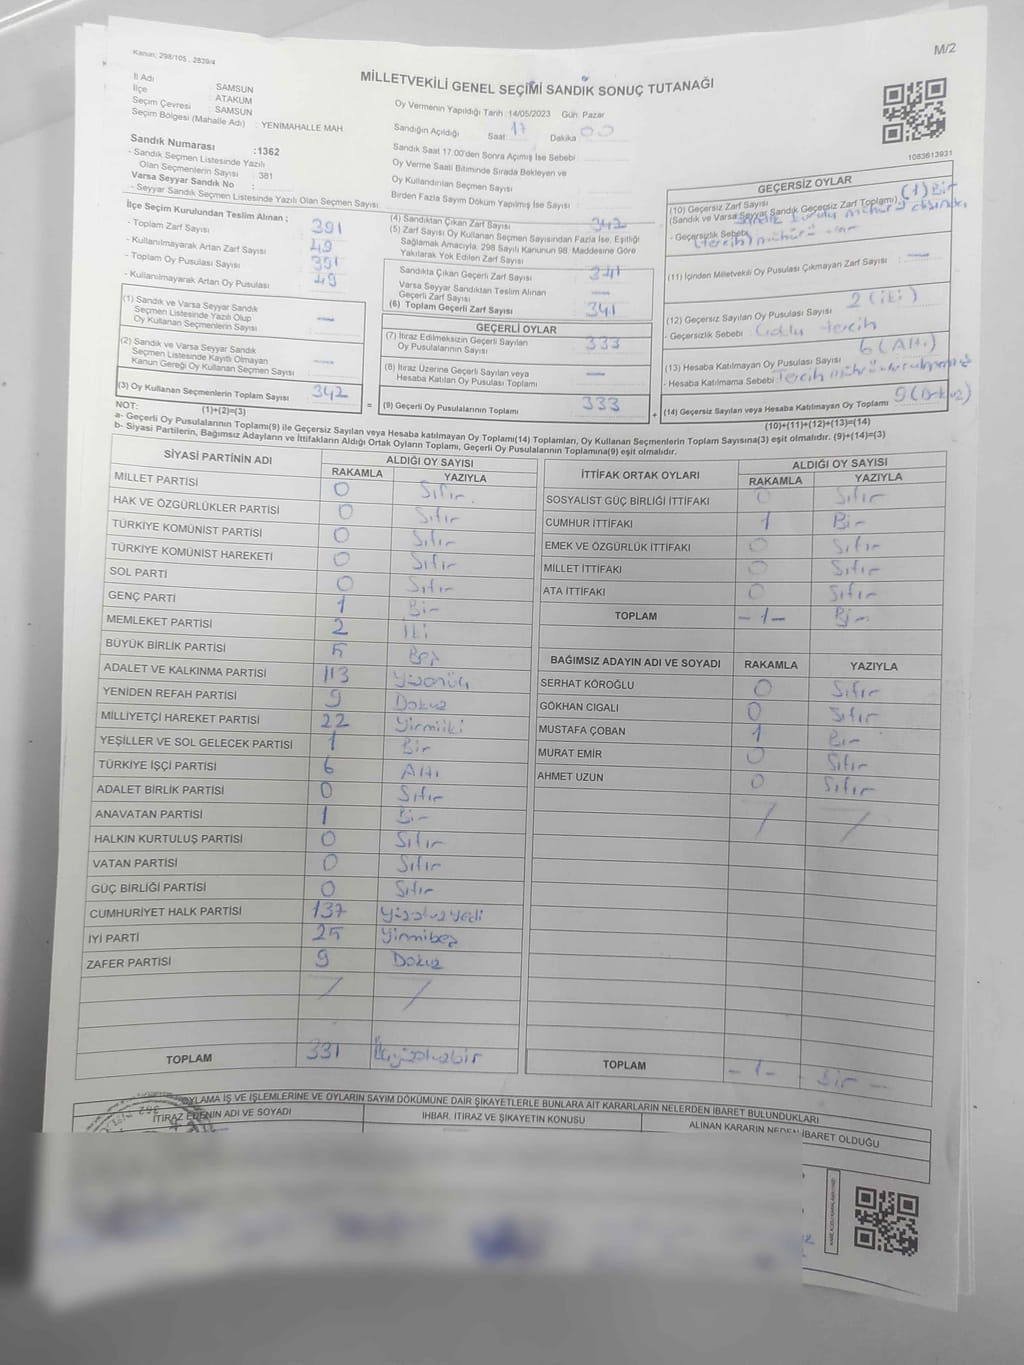 Kanun; 298/105 , 2839/4
M/2
MİLLETVEKİLİ GENEL SEÇİMİ SANDIK SONUÇ TUTANAĞI
İl Adı : SAMSUN
İlçe : ATAKUM
Seçim Çevresi : SAMSUN
Seçim Bölgesi (Mahalle Adı) : YENİMAHALLE MAH.
Sandık Numarası :1362
- Sandık Seçmen Listesinde Yazılı
Olan Seçmenlerin Sayısı : 381
Varsa Seyyar Sandık No :
- Seyyar Sandık Seçmen Listesinde Yazılı Olan Seçmen Sayısı
Oy Vermenin Yapıldığı Tarih :14/05/2023 Gün: Pazar
Sandığın Açıldığı Saat: 17 Dakika 00
Sandık Saat 17:00'den Sonra Açımış İse Sebebi
Oy Verme Saati Bitiminde Sırada Bekleyen ve
Oy Kullandırılan Seçmen Sayısı
Birden Fazla Sayım Döküm Yapılmış İse Sayısı
1083613931
İlçe Seçim Kurulundan Teslim Alınan ;
- Toplam Zarf Sayısı : 391
- Kullanılmayarak Artan Zarf Sayısı : 49
- Toplam Oy Pusulası Sayısı : 391
- Kullanılmayarak Artan Oy Pusulası : 49
(1) Sandık ve Varsa Seyyar Sandık
Seçmen Listesinde Yazılı Olup
Oy Kullanan Seçmenlerin Sayısı : —
(2) Sandık ve Varsa Seyyar Sandık
Seçmen Listesinde Kayıtlı Olmayan
Kanun Gereği Oy Kullanan Seçmen Sayısı : —
(3) Oy Kullanan Seçmenlerin Toplam Sayısı : 342
(1)+(2)=(3)
(4) Sandıktan Çıkan Zarf Sayısı : 342
(5) Zarf Sayısı Oy Kullanan Seçmen Sayısından Fazla İse, Eşitliği
Sağlamak Amacıyla: 298 Sayılı Kanunun 98. Maddesine Göre
Yakılarak Yok Edilen Zarf Sayısı
Sandıkta Çıkan Geçerli Zarf Sayısı : 341
Varsa Seyyar Sandıktan Teslim Alınan
Geçerli Zarf Sayısı : —
(6) Toplam Geçerli Zarf Sayısı : 341
GEÇERLİ OYLAR
(7) İtiraz Edilmeksizin Geçerli Sayılan
Oy Pusulalarının Sayısı : 333
(8) İtiraz Üzerine Geçerli Sayılan veya
Hesaba Katılan Oy Pusulası Toplamı : —
= (9) Geçerli Oy Pusulalarının Toplamı : 333 +
GEÇERSİZ OYLAR
(10) Geçersiz Zarf Sayısı (1) Bir
(Sandık ve Varsa Seyyar Sandık Geçersiz Zarf Toplamı)
- Geçersizlik Sebebi: Sandık kurulu mührü dışında
(tercih) mührü olan
(11) İçinden Milletvekili Oy Pusulası Çıkmayan Zarf Sayısı : —
(12) Geçersiz Sayılan Oy Pusulası Sayısı : 2 (iki)
- Geçersizlik Sebebi : Çoklu tercih
(13) Hesaba Katılmayan Oy Pusulası Sayısı : 6 (Altı)
- Hesaba Katılmama Sebebi : Tercih mührü
(14) Geçersiz Sayılan veya Hesaba Katılmayan Oy Toplamı : 9 (Dokuz)
(10)+(11)+(12)+(13)=(14)
NOT:
a- Geçerli Oy Pusulasının Toplamı(9) ile Geçersiz Sayılan veya Hesaba katılmayan Oy Toplamı(14) Toplamları, Oy Kullanan Seçmenlerin Toplam Sayısına(3) eşit olmalıdır. (9)+(14)=(3)
b- Siyasi Partilerin, Bağımsız Adayların ve İttifakların Aldığı Ortak Oyların Toplamı, Geçerli Oy Pusulalarının Toplamına(9) eşit olmalıdır.
SİYASİ PARTİNİN ADI ALDIĞI OY SAYISI
RAKAMLA YAZIYLA
MİLLET PARTİSİ 0 Sıfır
HAK VE ÖZGÜRLÜKLER PARTİSİ 0 Sıfır
TÜRKİYE KOMÜNİST PARTİSİ 0 Sıfır
TÜRKİYE KOMÜNİST HAREKETİ 0 Sıfır
SOL PARTİ 0 Sıfır
GENÇ PARTİ 1 Bir
MEMLEKET PARTİSİ 2 İki
BÜYÜK BİRLİK PARTİSİ 5 Beş
ADALET VE KALKINMA PARTİSİ 113 Yüzonüç
YENİDEN REFAH PARTİSİ 9 Dokuz
MİLLİYETÇİ HAREKET PARTİSİ 22 Yirmiiki
YEŞİLLER VE SOL GELECEK PARTİSİ 1 Bir
TÜRKİYE İŞÇİ PARTİSİ 6 Altı
ADALET BİRLİK PARTİSİ 0 Sıfır
ANAVATAN PARTİSİ 1 Bir
HALKIN KURTULUŞ PARTİSİ 0 Sıfır
VATAN PARTİSİ 0 Sıfır
GÜÇ BİRLİĞİ PARTİSİ 0 Sıfır
CUMHURİYET HALK PARTİSİ 137 Yüzotuzyedi
İYİ PARTİ 25 Yirmibeş
ZAFER PARTİSİ 9 Dokuz
TOPLAM 331 Üçyüzotuzbir
İTTİFAK ORTAK OYLARI ALDIĞI OY SAYISI
RAKAMLA YAZIYLA
SOSYALİST GÜÇ BİRLİĞİ İTTİFAKI 0 Sıfır
CUMHUR İTTİFAKI 1 Bir
EMEK VE ÖZGÜRLÜK İTTİFAKI 0 Sıfır
MİLLET İTTİFAKI 0 Sıfır
ATA İTTİFAKI 0 Sıfır
TOPLAM -1- Bir
BAĞIMSIZ ADAYIN ADI VE SOYADI RAKAMLA YAZIYLA
SERHAT KÖROĞLU 0 Sıfır
GÖKHAN CIGALI 0 Sıfır
MUSTAFA ÇOBAN 1 Bir
MURAT EMİR 0 Sıfır
AHMET UZUN 0 Sıfır
TOPLAM -1- - Bir -
OYLAMA İŞ VE İŞLEMLERİNE VE OYLARIN SAYIM DÖKÜMÜNE DAİR ŞİKAYETLERLE BUNLARA AİT KARARLARIN NELERDEN İBARET BULUNDUKLARI
İTİRAZ EDENİN ADI VE SOYADI İHBAR, İTİRAZ VE ŞİKAYETİN KONUSU ALINAN KARARIN NEDEN İBARET OLDUĞU